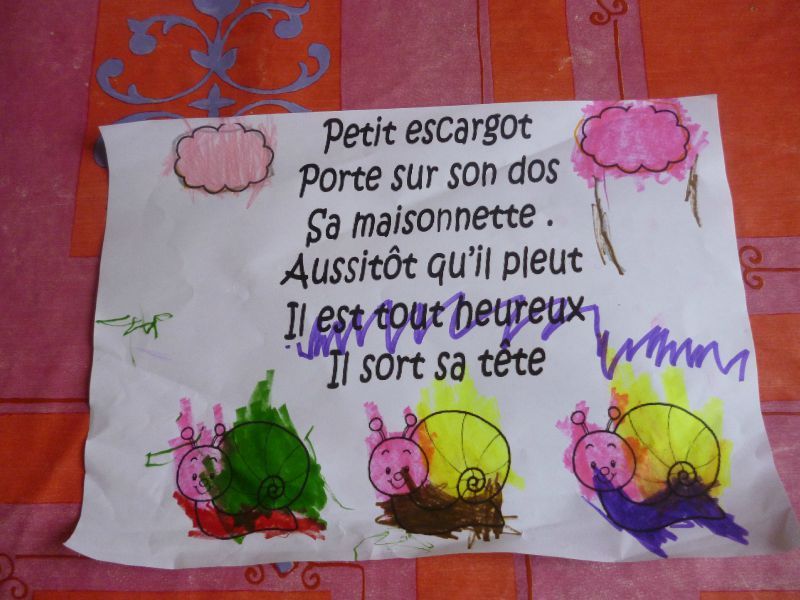 Petit escargot
Porte sur son dos
Sa maisonnette .
Aussitôt qu'il pleut
Il est tout heureux
Il sort sa tête